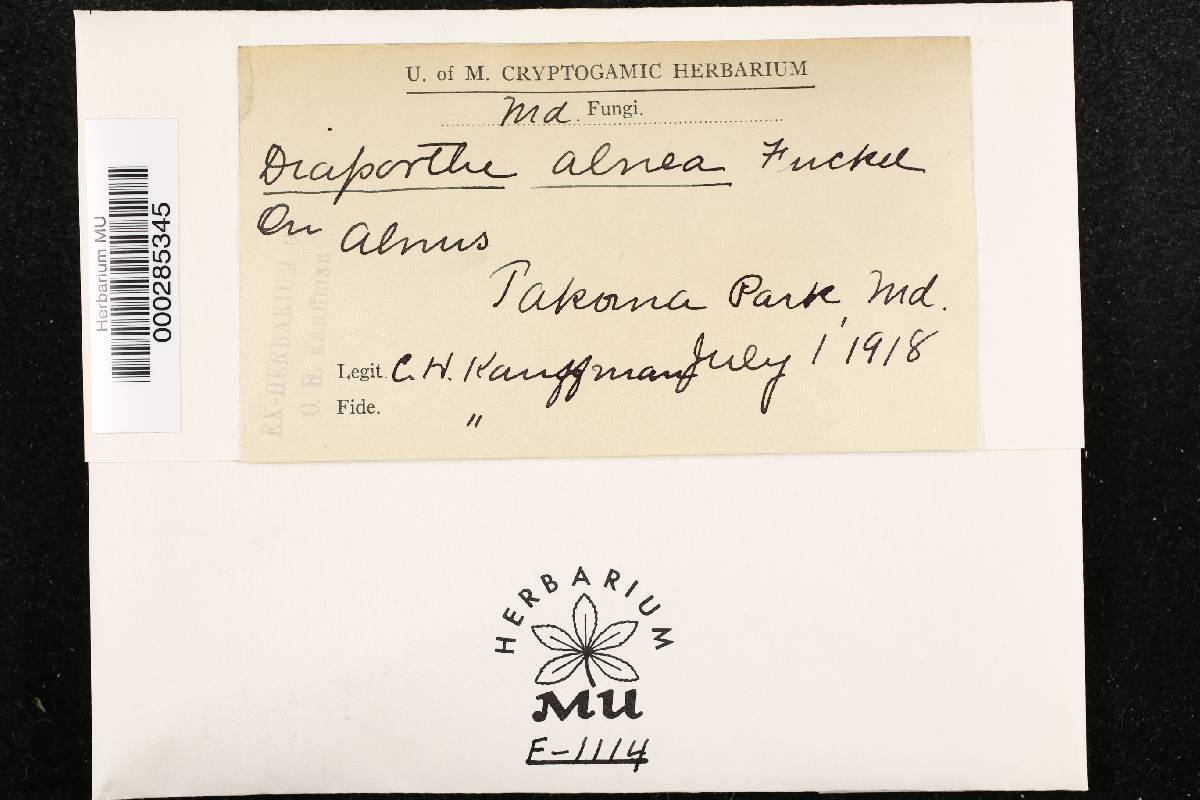 U. of M. CRYPTOGAMIC HERBARIUM
Md. Fungi.
Diaporthe alnea Fuckel
On Alnus
Takoma Park, Md.
Legit C. H. Kauffman July 1, 1918
Fide. "
EX-HERBARIUM
C. H. Kauffman
Herbarium MU
000285345
HERBARIUM
MU
F-1114